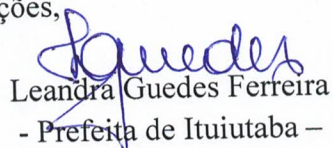 ções,
Guedes
Leandra Guedes Ferreira
- Prefeita de Ituiutaba –